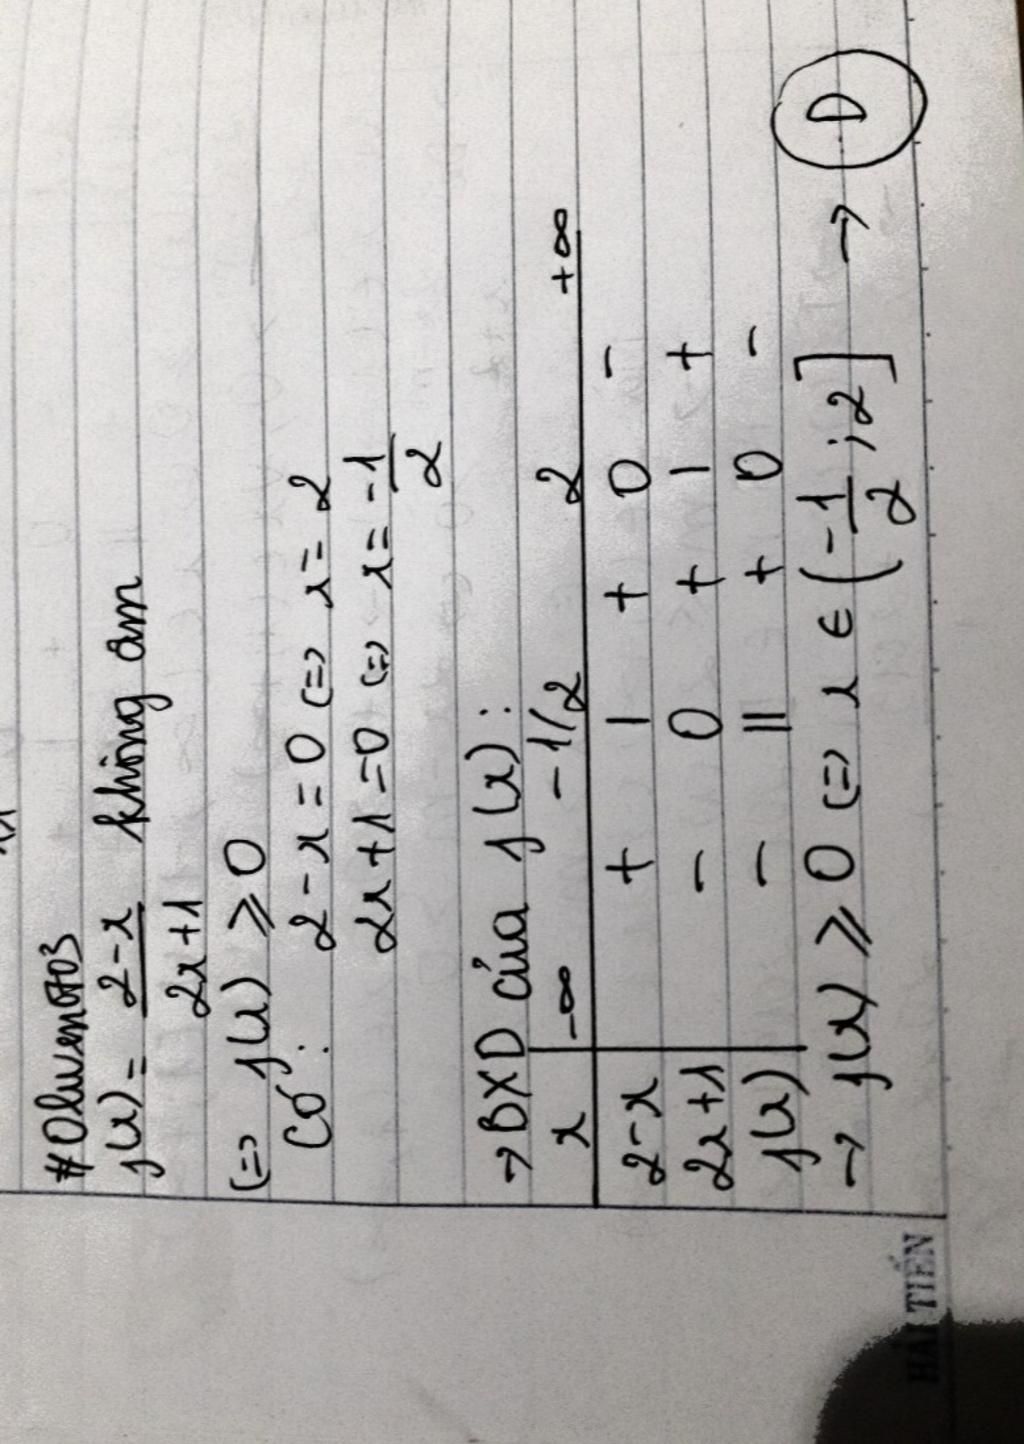 #Oluvem0703
f(x) = \frac{2-x}{2x+1} không âm
(=) f(x) ⩾ 0
Có: 2-x = 0 (=) x = 2
2x+1 = 0 (=) x = \frac{-1}{2}
→ BXD của f(x):
x -∞ -1/2 2 +∞
2-x + | + 0 -
2x+1 - 0 + | +
f(x) - || + 0 -
→ f(x) ⩾ 0 (=) x ∈ (\frac{-1}{2}; 2] → D
HẢI TIẾN